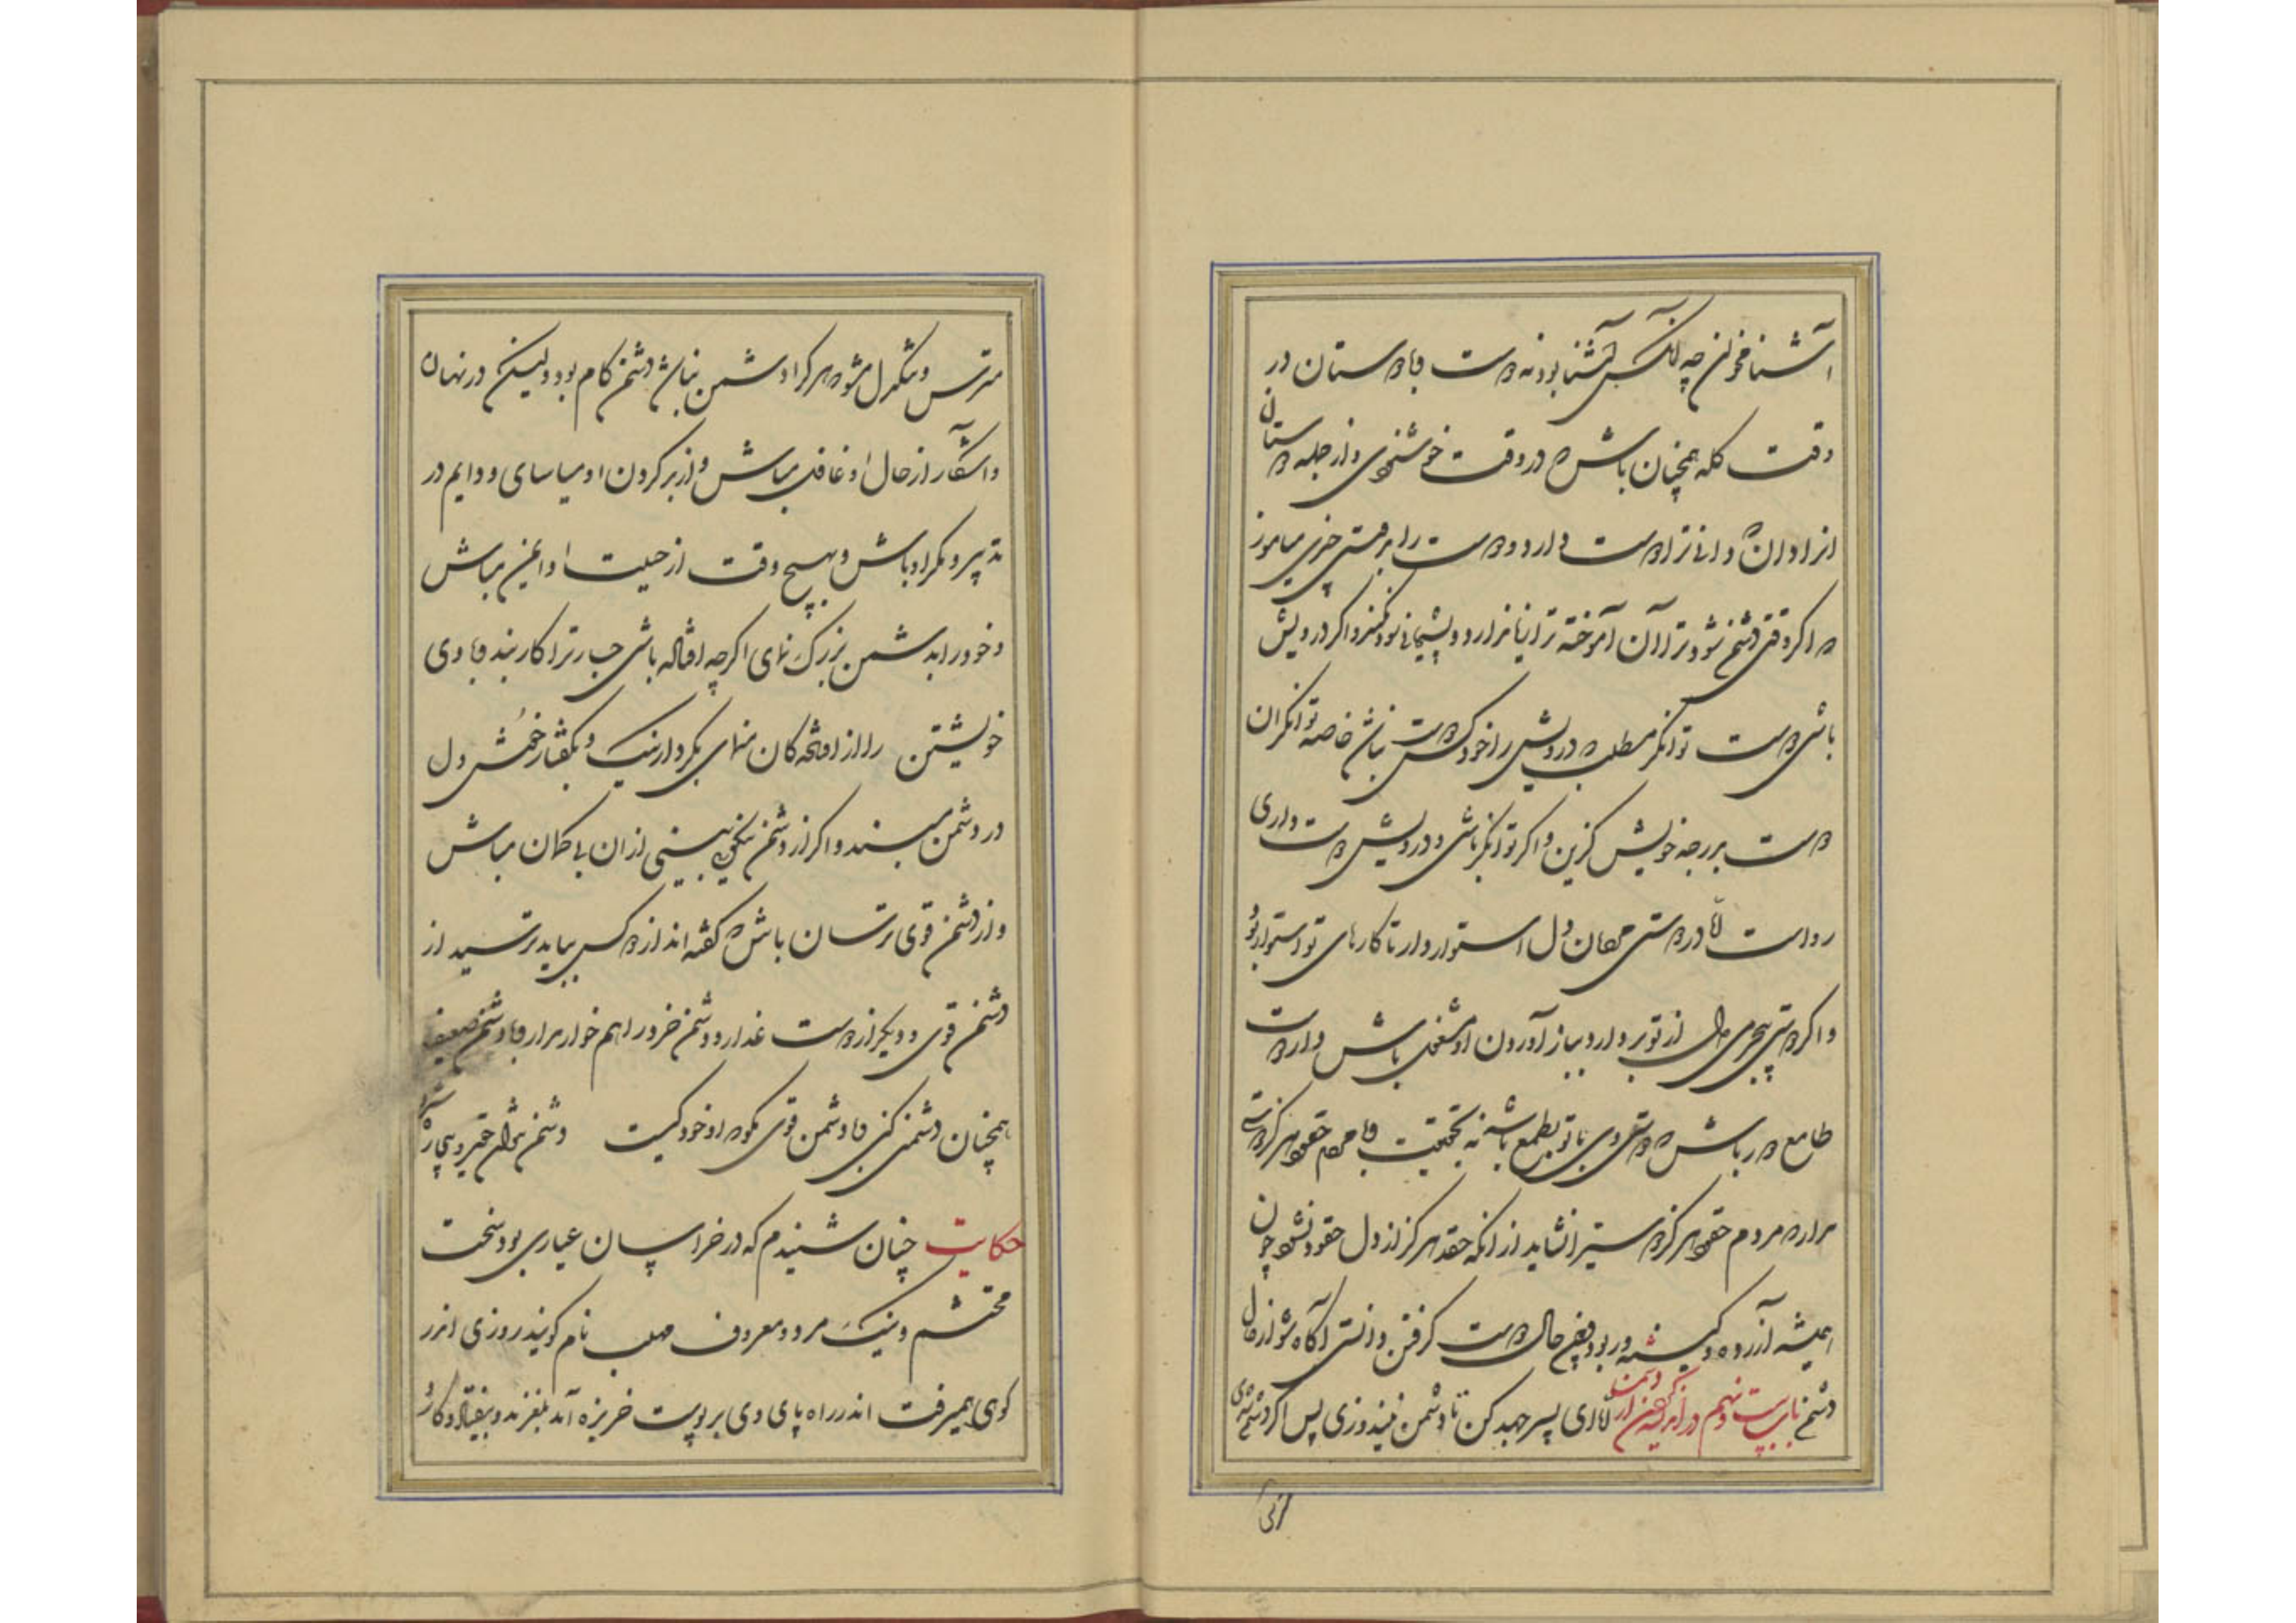 آشنا مخوان چه آنکس آشنا بود نه دوست و با دوستان در
وقت کله همچنان باش که در وقت خوشنودی و از جمله دوستان
انرا دان که دانا ترا دوست دارد و دوست را بدوستی چیزی میاموز
که اگر وقتی دشمن شود ترا آن آموخته ترا زیان دارد و پشیمانی سود نکند و اگر درویش
باشی دوست توانگر مطلب که درویش را خود کس دوست نباشد خاصه توانگران
دوست بدرجه خویش گزین و اگر توانگر باشی و درویش دوست داری
رواست اما در دوستی مردمان دل استوار دار تا کارهای تو استوار بود
و اگر دوستی بیجرمی دل از تو بردارد بباز آوردن او مشغول باش و از دوست
طامع دور باش که دوستی وی با تو بطمع باشد نه بحقیقت و با مردم حقود هرگز دوستی
مدار که مردم حقود هرگز دوستی را نشاید از آنکه حقد هرگز از دل حقود نشود چون
همیشه آزرده و کینه ور بود چون حال دوست گرفتن دانستی آگاه شو از حال
دشمن باب بیست و نهم در اندیشه کردن از دشمن اما ای پسر جهد کن تا دشمن نیندوزی پس اگر دشمنت بود
مترس
مترس و تنگدل مشو که هر کرا دشمن نباشد دشمن کام بود ولیکن در نهان
و آشکار از حال او غافل مباش و از بد کردن او میاسای و دایم در
تدبیر و مکر او باش و بهیچ وقت از حیلت او ایمن مباش
و خود را بدشمن بزرگ نمای اگرچه افتاده باشی
خویشتن را از افتادگان منمای بکردار نیک و بگفتار خوش دل
در دشمن مبند و اگر از دشمن نیکویی بینی از ان بی گمان مباش
و از دشمن قوی ترسان باش که گفته اند از دو کس بباید ترسید از
دشمن قوی و دیگر از دوست غدار و دشمن خرد را هم خوار مدار و با دشمن ضعیف
همچنان دشمنی کن که با دشمن قوی مگو که او خود کیست دشمن نتوان حقیر و بیچاره
حکایت چنان شنیدم که در خراسان عیاری بود سخت
محتشم و نیک مرد و معروف مهلب نام گویند روزی اندر
کوی همیرفت اندر راه پای وی بر پوست خربزه آمد بلغزید و بیفتاد و کارد